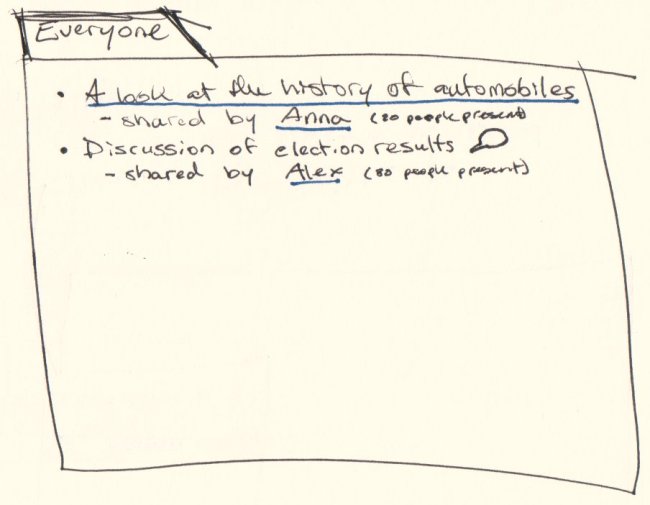 Everyone
• A look at the history of automobiles
- shared by Anna (20 people present)
• Discussion of election results
- shared by Alex (80 people present)